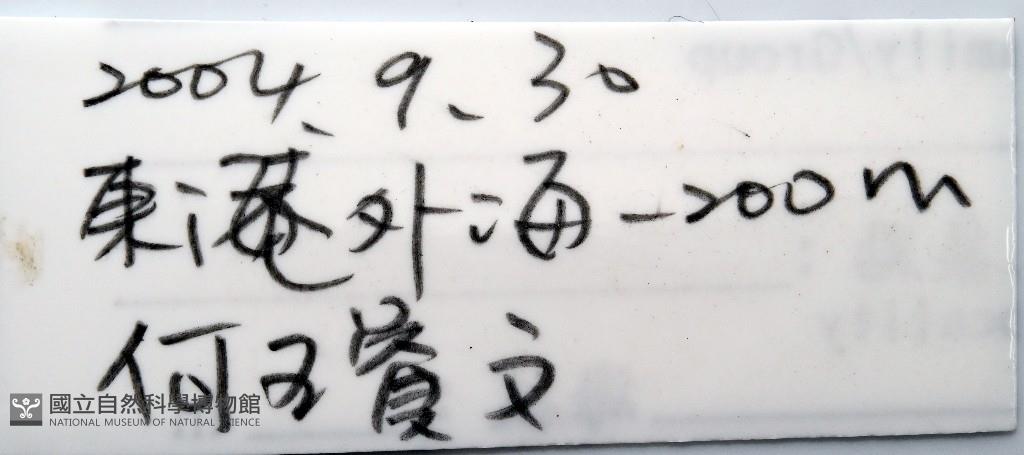 2004、9、30
東港外海-200m
何 文
國立自然科學博物館
NATIONAL MUSEUM OF NATURAL SCIENCE